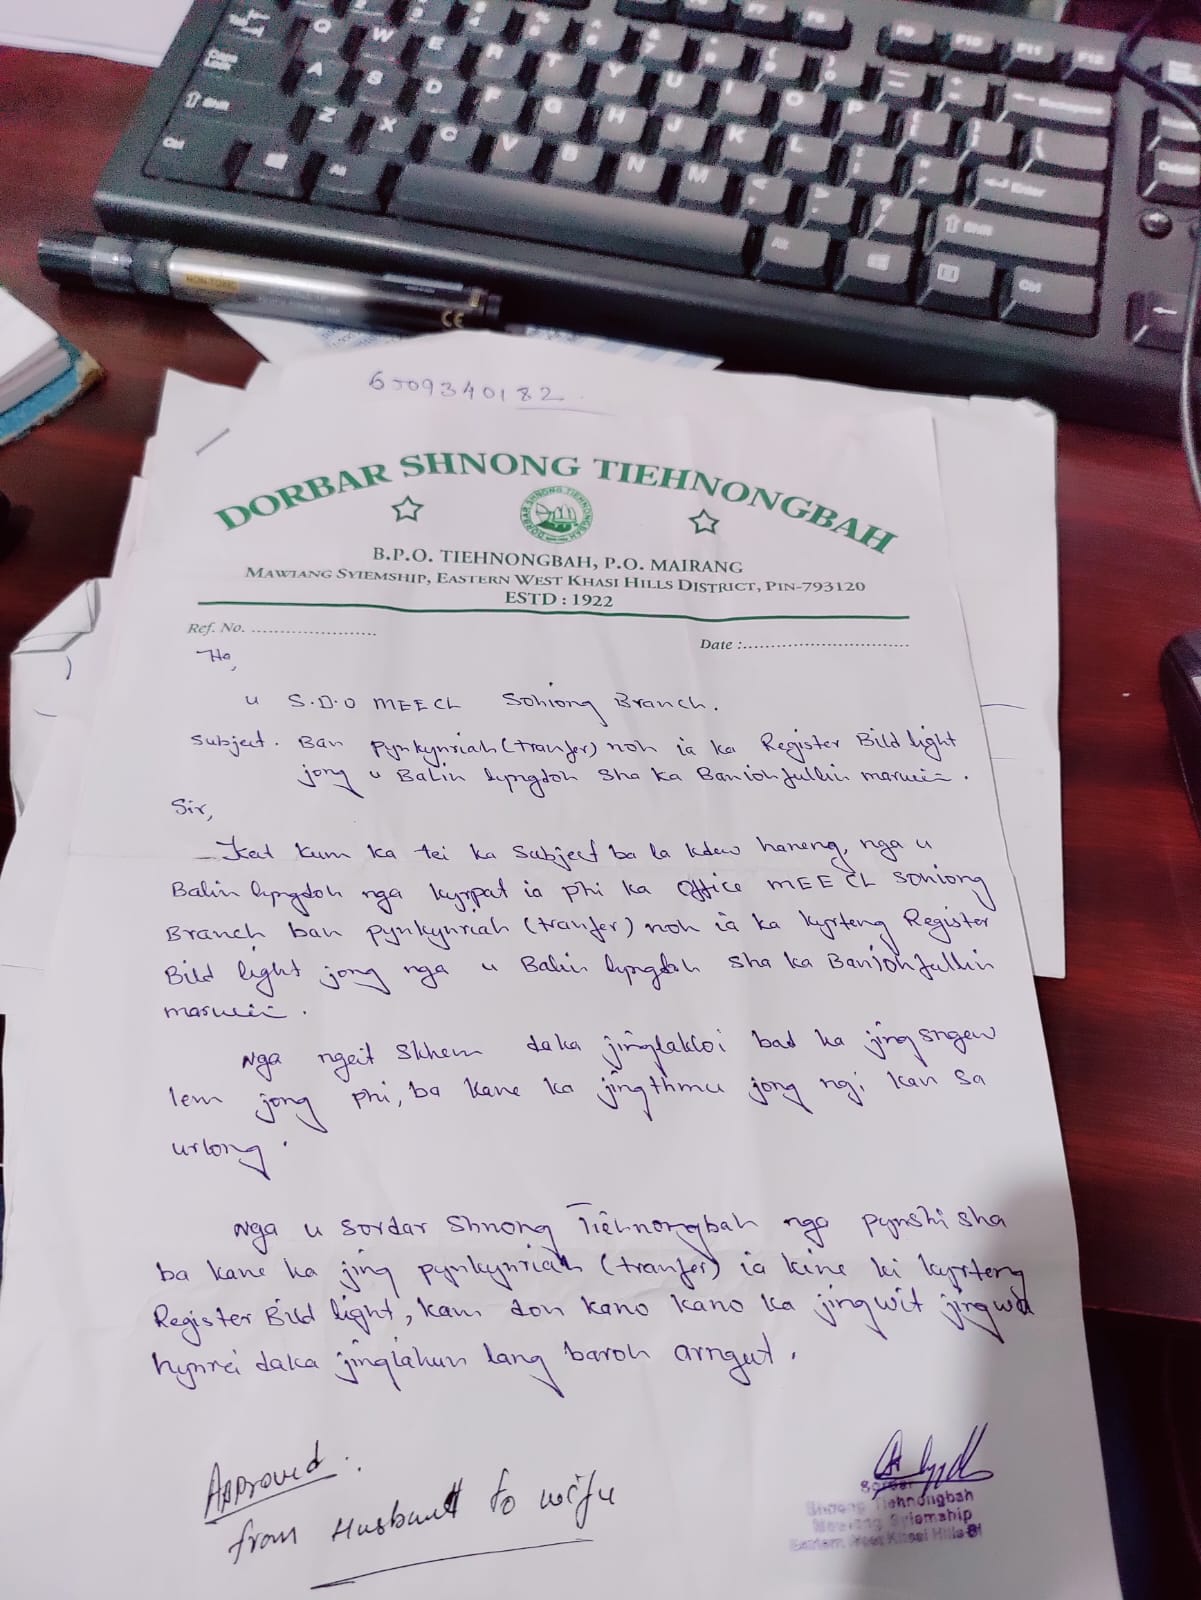 6509340182
DORBAR SHNONG TIEHNONGBAH
B.P.O. TIEHNONGBAH, P.O. MAIRANG
MAWIANG SYIEMSHIP, EASTERN WEST KHASI HILLS DISTRICT, PIN-793120
ESTD : 1922
Ref. No. ......................
Date :..............................
To,
u S.D.O MEECL Sohiong Branch.
Subject. Ban pynkynriah (tranfer) noh ia ka Register Bild light
jong u Balin lyngdoh sha ka Banjohfullin marwein.
Sir,
Kat kum ka tei ka Subject ba la kdew haneng, nga u
Balin lyngdoh nga kyrpat ia phi ka office MEECL Sohiong
Branch ban pynkynriah (tranfer) noh ia ka kyrteng Register
Bild light jong nga u Balin lyngdoh sha ka Banjohfullin
marwein.
Nga ngeit Skhem daka jinglakloi bad ka jingsngew
lem jong phi, ba kane ka jingthmu jong ngi kan sa
urlong.
Nga u Sordar Shnong Tiehnongbah nga pynshisha
ba kane ka jing pynkynriah (tranfer) ia kine ki kyrteng
Register Bild light, kam don kano kano ka jingwit jingwa
hynrei daka jinglahun lang baroh arngut.
Approved.
from Husband to wife
Sordar
Shnong Tiehnongbah
Mawiang Syiemship
Eastern West Khasi Hills